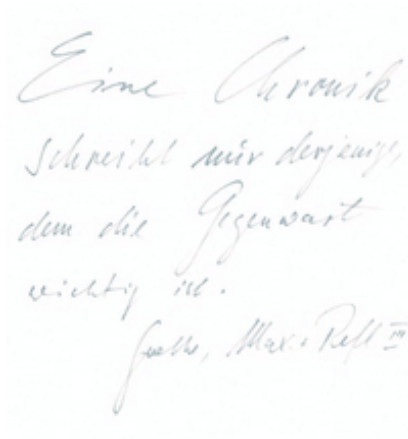 Eine Chronik
schreibt nur derjenige,
dem die Gegenwart
wichtig ist.
Goethe, Max. u. Refl. III